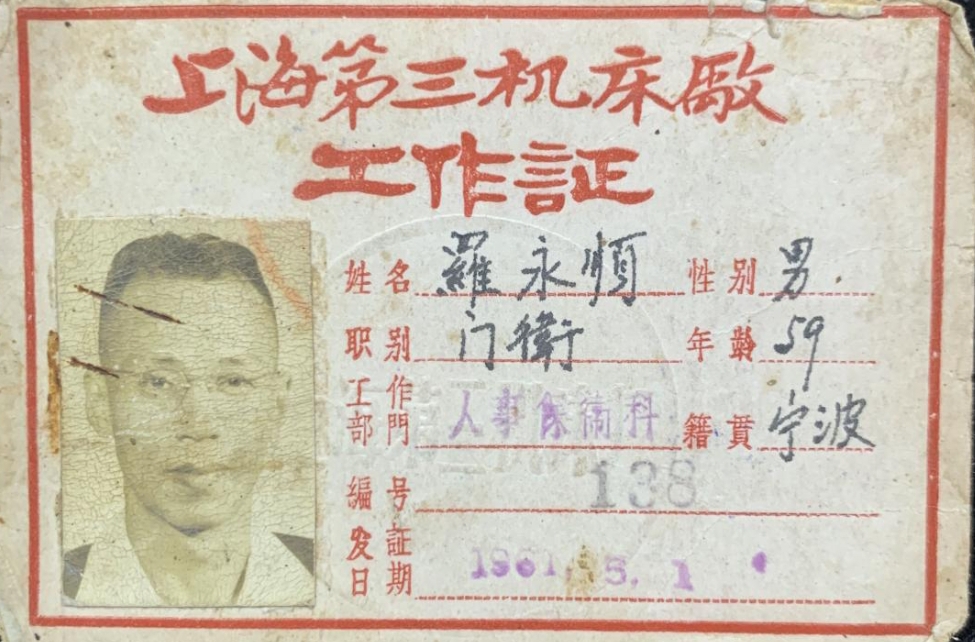 上海第三机床廠
工作証
姓名 羅永順 性别 男
职别 门衛 年齡 59
工作部門 人事保衛科 籍貫 宁波
编号 138
发証日期 1961. 5. 1